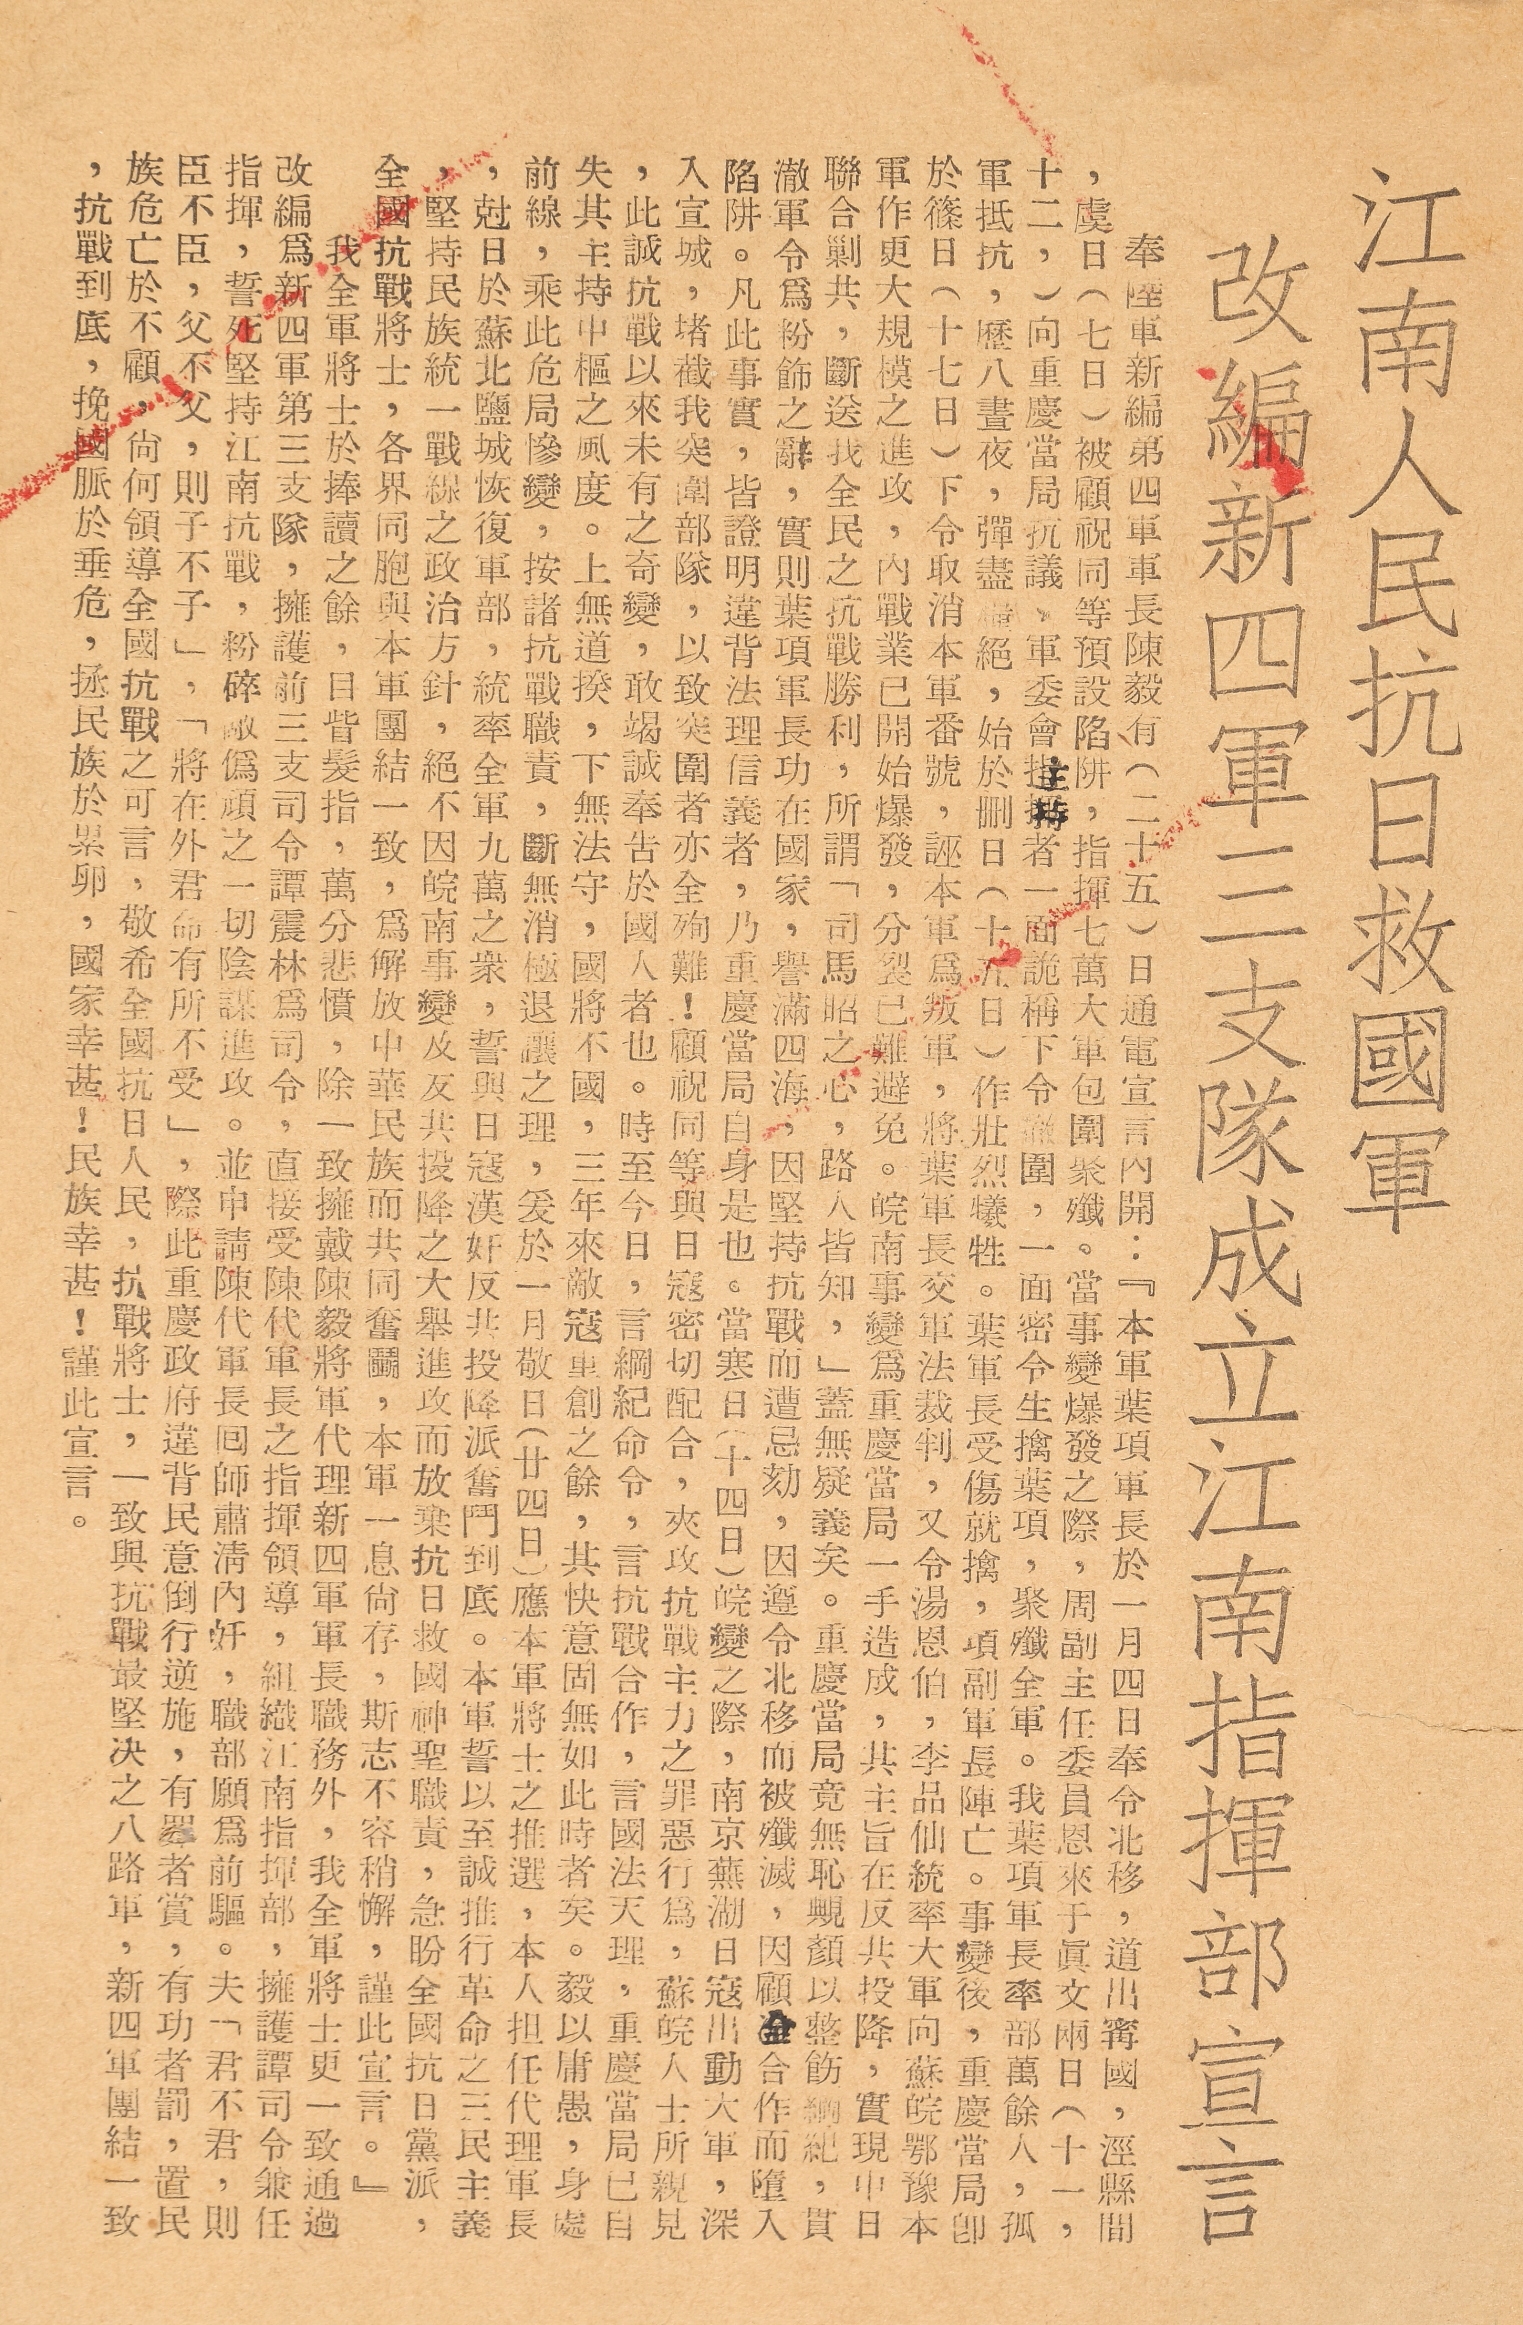 江南人民抗日救國軍
改編新四軍三支隊成立江南指揮部宣言
奉陸軍新編第四軍軍長陳毅有（二十五）日通電宣言內開：『本軍葉項軍長於一月四日奉令北移，道出寗國，涇縣間
，虞日（七日）被顧祝同等預設陷阱，指揮七萬大軍包圍聚殲。當事變爆發之際，周副主任委員恩來于眞文兩日（十一，
十二，）向重慶當局抗議，軍委會主持者一面詭稱下令撤圍，一面密令生擒葉項，聚殲全軍。我葉項軍長率部萬餘人，孤
軍抵抗，歷八晝夜，彈盡糧絕，始於刪日（十五日）作壯烈犧牲。葉軍長受傷就擒，項副軍長陣亡。事變後，重慶當局卽
於篠日（十七日）下令取消本軍番號，誣本軍爲叛軍，將葉軍長交軍法裁判，又令湯恩伯，李品仙統率大軍向蘇皖鄂豫本
軍作更大規模之進攻，內戰業已開始爆發，分裂已難避免。皖南事變爲重慶當局一手造成，其主旨在反共投降，實現中日
聯合剿共，斷送我全民之抗戰勝利，所謂「司馬昭之心，路人皆知，」蓋無疑義矣。重慶當局竟無恥靦顏以整飭綱紀，貫
澈軍令爲粉飾之辭，實則葉項軍長功在國家，譽滿四海，因堅持抗戰而遭忌刻，因遵令北移而被殲滅，因顧全合作而墮入
陷阱。凡此事實，皆證明違背法理信義者，乃重慶當局自身是也。當寒日（十四日）皖變之際，南京蕪湖日寇出動大軍，深
入宣城，堵截我突圍部隊，以致突圍者亦全殉難！顧祝同等與日寇密切配合，夾攻抗戰主力之罪惡行爲，蘇皖人士所親見
，此誠抗戰以來未有之奇變，敢竭誠奉告於國人者也。時至今日，言綱紀命令，言抗戰合作，言國法天理，重慶當局已自
失其主持中樞之風度。上無道揆，下無法守，國將不國，三年來敵寇重創之餘，其快意固無如此時者矣。毅以庸愚，身處
前線，乘此危局慘變，按諸抗戰職責，斷無消極退讓之理，爰於一月敬日（廿四日）應本軍將士之推選，本人担任代理軍長
，尅日於蘇北鹽城恢復軍部，統率全軍九萬之衆，誓與日寇漢奸反共投降派奮鬥到底。本軍誓以至誠推行革命之三民主義
，堅持民族統一戰線之政治方針，絕不因皖南事變及反共投降之大舉進攻而放棄抗日救國神聖職責，急盼全國抗日黨派，
全國抗戰將士，各界同胞與本軍團結一致，爲解放中華民族而共同奮鬭，本軍一息尙存，斯志不容稍懈，謹此宣言。』
我全軍將士於捧讀之餘，目眥髮指，萬分悲憤，除一致擁戴陳毅將軍代理新四軍軍長職務外，我全軍將士更一致通過
改編爲新四軍第三支隊，擁護前三支司令譚震林爲司令，直接受陳代軍長之指揮領導，組織江南指揮部，擁護譚司令兼任
指揮，誓死堅持江南抗戰，粉碎敵僞頑之一切陰謀進攻。並申請陳代軍長囘師肅淸內奸，職部願爲前驅。夫「君不君，則
臣不臣，父不父，則子不子」，「將在外君命有所不受」，際此重慶政府違背民意倒行逆施，有罪者賞，有功者罰，置民
族危亡於不顧，尙何領導全國抗戰之可言，敬希全國抗日人民，抗戰將士，一致與抗戰最堅决之八路軍，新四軍團結一致
，抗戰到底，挽國脈於垂危，拯民族於累卵，國家幸甚！民族幸甚！謹此宣言。